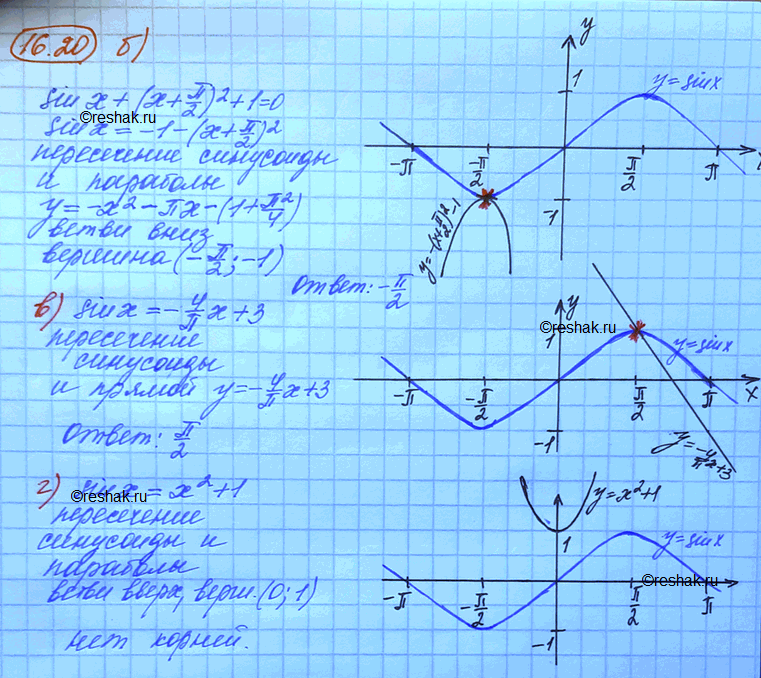 16.20 б)
sin x + (x + π/2)² + 1 = 0
©reshak.ru
sin x = -1 - (x + π/2)²
пересечение синусоиды
и параболы
y = -x² - πx - (1 + π²/4)
ветви вниз
вершина (-π/2; -1)
Ответ: -π/2
y
1
y = sin x
-π -π/2 π/2 π
-1
y = -(x + π/2)² - 1
в) sin x = -4/π x + 3
пересечение
синусоиды
и прямой y = -4/π x + 3
Ответ: π/2
y
©reshak.ru
1
y = sin x
-π -π/2 π/2 π x
-1
y = -4/π x + 3
г) sin x = x² + 1
©reshak.ru
пересечение
синусоиды и
параболы
ветви вверх, верш. (0; 1)
нет корней.
y = x² + 1
1
y = sin x
©reshak.ru
-π -π/2 π/2 π
-1